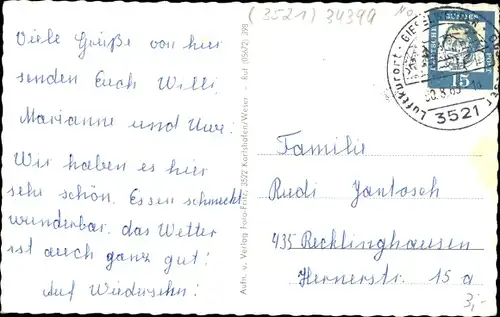 (3521) 34399
Viele Grüße von hier
senden Euch Willi
Marianne und Uwe.
Wir haben es hier
sehr schön. Essen schmeckt
wunderbar. das Wetter
ist auch ganz gut!
Auf Wiedersehn!
Aufn. u. Verlag Foto-Fritz, 3522 Karlshafen/Weser - Ruf (05672) 393
Luftkurort
3521
15
Familie
Rudi Jantosch
435 Recklinghausen
Hernerstr. 15 a
3,-